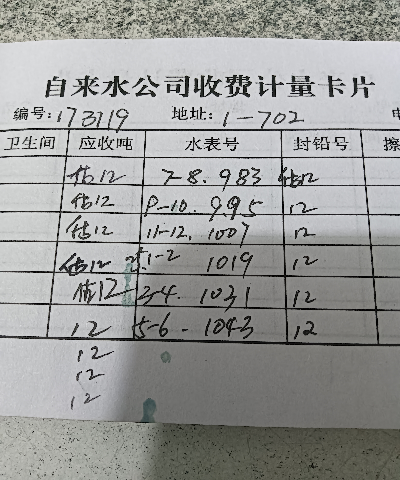 自来水公司收费计量卡片
编号: 173719 地址: 1-702 电
卫生间 应收吨 水表号 封铅号 擦
估12 7-8. 983 估12
估12 9-10. 995 12
估12 11-12. 1007 12
估12 1-2 1019 12
估12 3-4. 1031 12
12 5-6. 1043 12
12
12
12